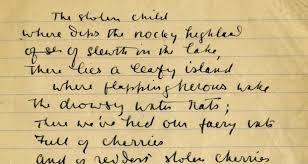 The stolen child
where dips the rocky highland
of Sleuth in the lake,
There lies a leafy island
where flapping herons wake
the drowsy water rats;
There we've hid our faery vats
Full of berries
And reddest stolen cherries